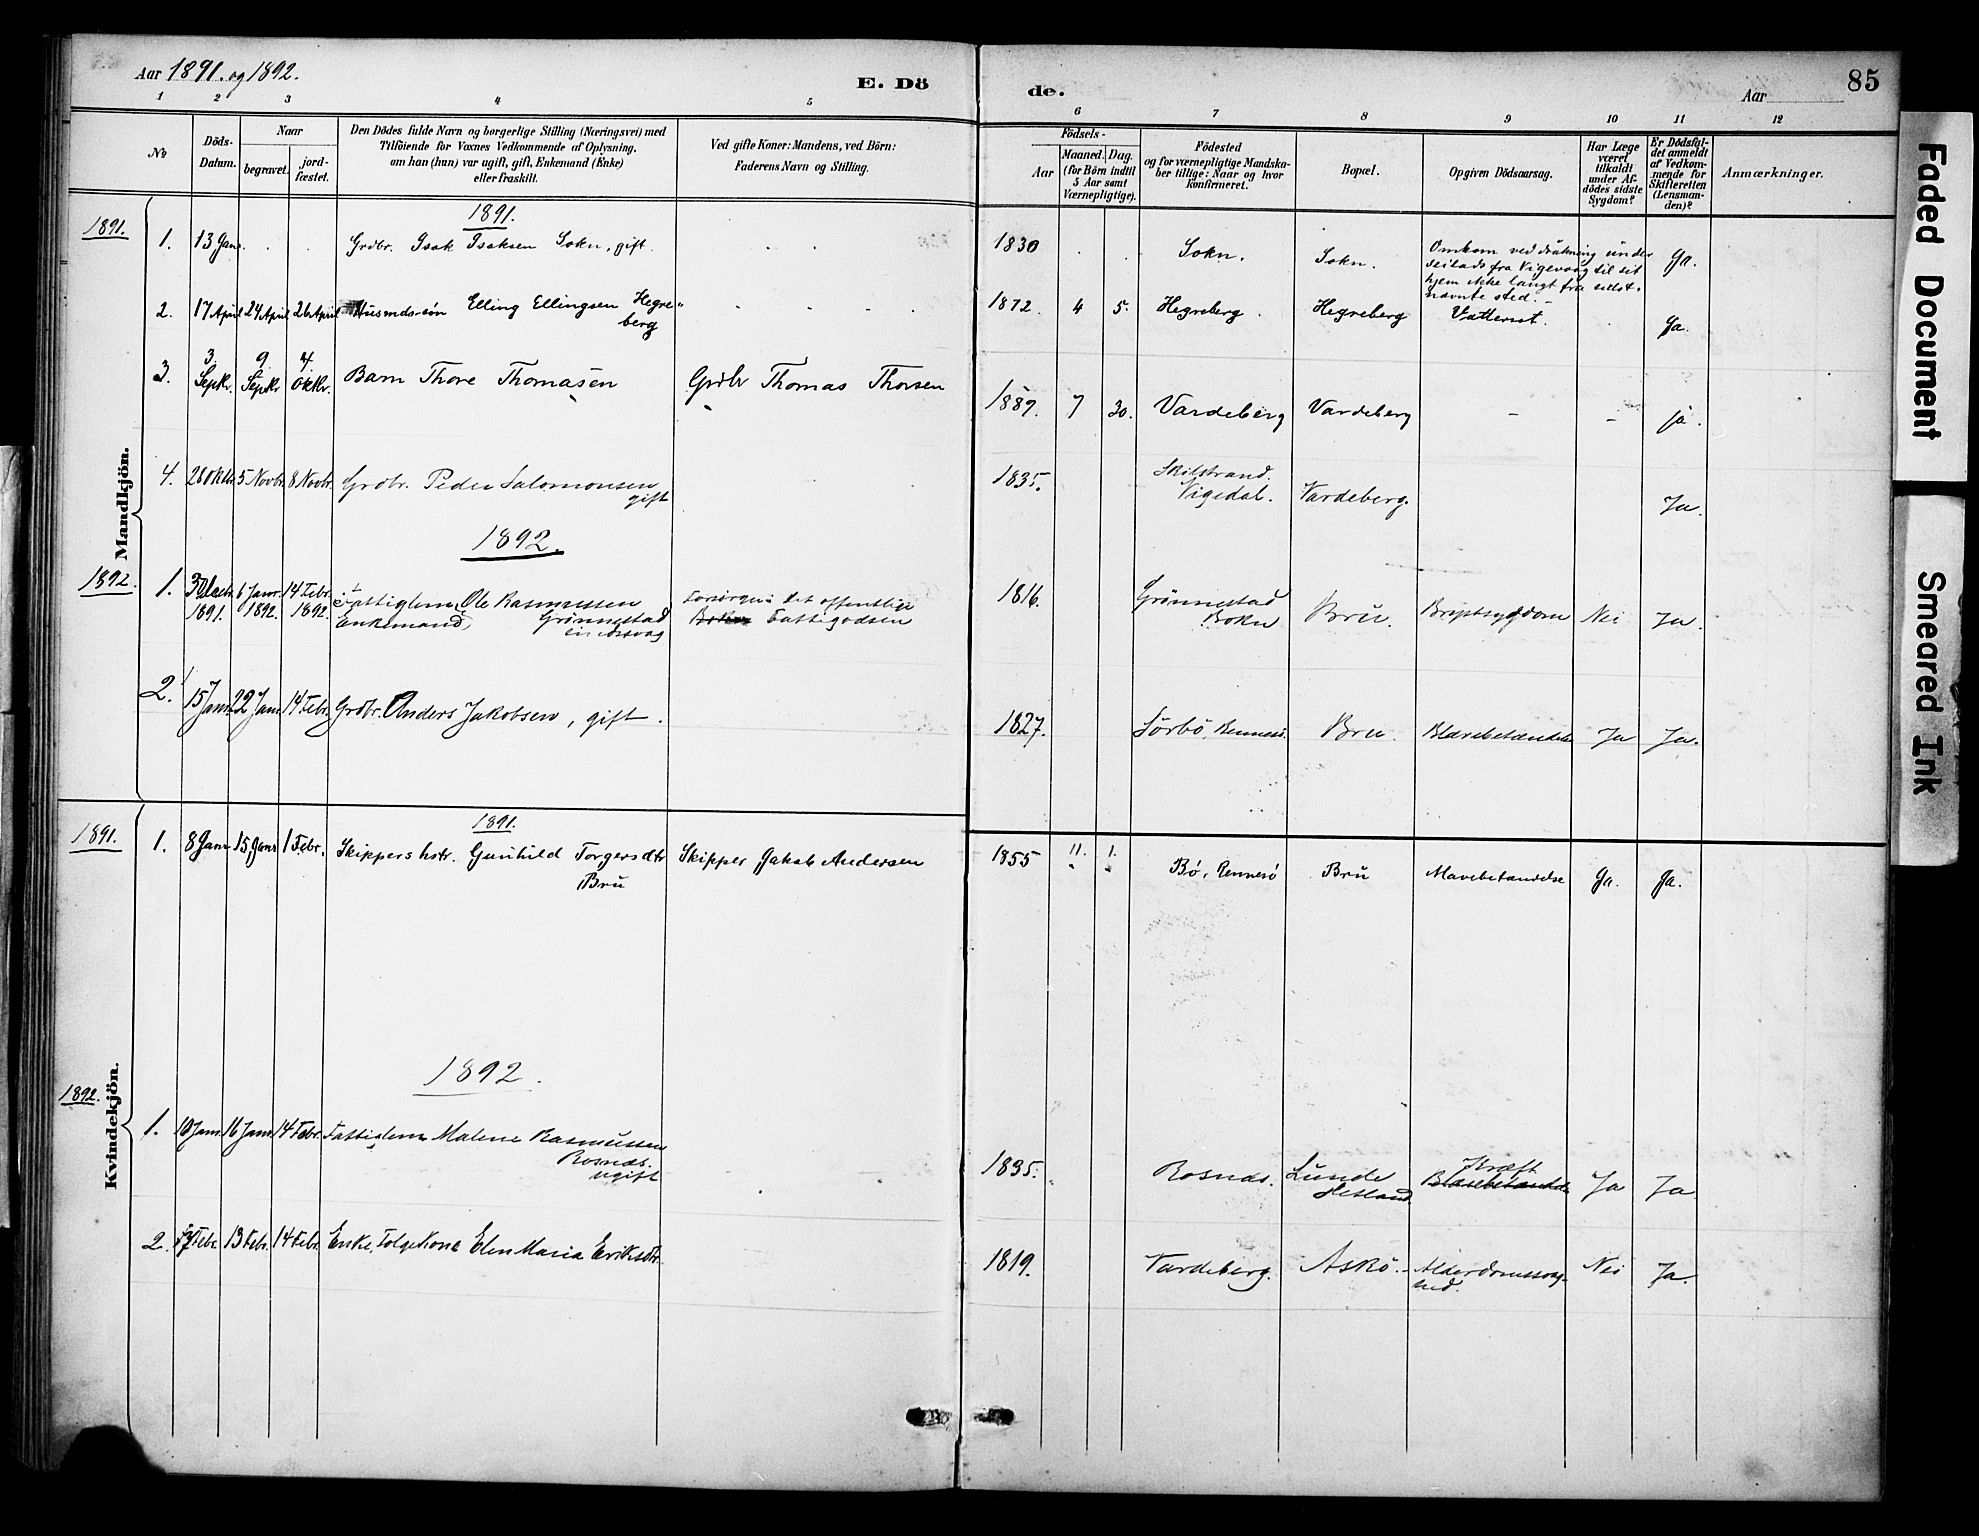 Aar 1891. og 1892.
E. Dö
de.
Aar
85
1 2 3 4 5 6 7 8 9 10 11 12
No
Döds-Datum.
Naar
begravet.
jord-fæstet.
Den Dödes fulde Navn og borgerlige Stilling (Næringsvei) med
Tilföiende for Voxnes Vedkommende af Oplysning,
om han (hun) var ugift, gift, Enkemand (Enke)
eller fraskilt.
Ved gifte Koner: Mandens, ved Börn:
Faderens Navn og Stilling.
Födsels-
Aar
Maaned. Dag.
(for Börn indtil
5 Aar samt
Værnepligtige).
Födested
og for værnepligtige Mandska-
ber tillige: Naar og hvor
konfirmeret.
Bopæl.
Opgiven Dödsaarsag.
Har Læge
været
tilkaldt
under Af-
dödes sidste
Sygdom?
Er Dödsfal-
det anmeldt
af Vedkom-
mende for
Skifteretten
(Lensman-
den)?
Anmærkninger.
Mandkjön.
1891.
1891.
1. 13 Janr. Grdbr. Isak Isaksen Sokn, gift. 1830 Sokn. Sokn. Omkom ved drukning under
seilads fra Vigevaag til sit
hjem ikke langt fra sidst-
nævnte sted. Ja.
2. 17 April 24 April 26 April Husmdssön Elling Ellingsen Hegre-
berg 1872. 4 5. Hegreberg. Hegreberg Vattersot. Ja.
3. 3. Septr. 9 Septbr. 4 Oktbr. Barn Thore Thomasen Grdbr Thomas Thorsen 1889. 7 30. Vardeberg Vardeberg - - ja.
4. 28 Oktb. 5 Novbr. 8 Novbr. Grdbr. Peder Salomonsen
gift 1835. Skilstrand.
Vigedal. Vardeberg. Ja.
1892.
1892.
1. 30 Decb.
1891. 6 Janr.
1892. 14 Febr.
1892. Fattiglem, Ole Rasmussen
Enkemand, Grönnestad
Forsörges det offentlige
Bokn Fattigvæsen 1816. Grönnestad
Bokn Bru. Brystsygdom Nei Ja.
2. 15 Janr. 22 Janr. 14 Febr. Grdbr. Anders Jakobsen, gift. 1827. Sörbö, Rennesö. Bru. Blærebetændelse Ja Ja.
Kvindekjön.
1891.
1891.
1. 8 Janr 15 Janr 1 Febr. Skippers hstr. Gunhild Torgersdtr
Bru Skipper Jakob Andersen 1855 11. 1. Bø, Rennesö Bru Mavebetændelse Ja. Ja.
1892.
1892.
1. 10 Janr. 16 Janr. 14 Febr. Fattiglem Malene Rasmussen
Rosnæs.
ugift 1835. Rosnæs. Lunde
Hetland Kræft
Blærebetændelse Ja Ja
2. 7 Febr. 13 Febr. 14 Febr. Enke, Folgekone Elen Maria Eriksdtr. 1819. Vardeberg. Askö. Alderdomssvag-
hed. Nei Ja.
Faded Document
Smeared Ink